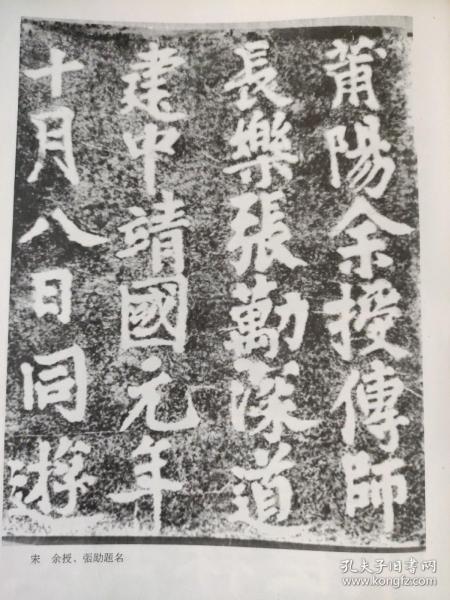 莆陽余授傅師
長樂張勵深道
建中靖國元年
十月八日同遊
宋 余授、張勛題名
孔夫子旧书网
www.kongfz.com